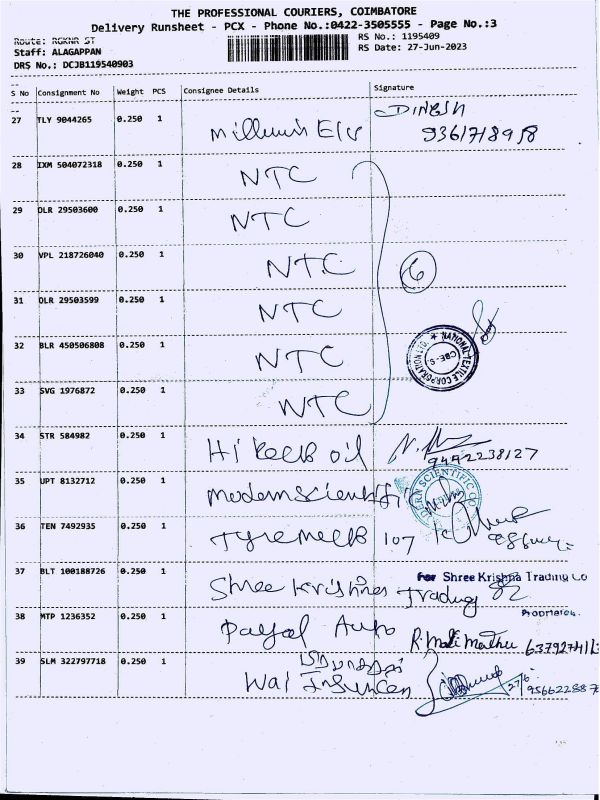 THE PROFESSIONAL COURIERS, COIMBATORE
Delivery Runsheet - PCX - Phone No.:0422-3505555 - Page No.:3
Route: RGKNR ST
RS No.: 1195409
Staff: ALAGAPPAN
RS Date: 27-Jun-2023
DRS No.: DCJB119540903
S No Consignment No Weight PCS Consignee Details Signature
27 TLY 9044265 0.250 1 DINESH
28 IXM 504072318 0.250 1 NTC
29 DLR 29503600 0.250 1 NTC
30 VPL 218726040 0.250 1 NTC 6
31 DLR 29503599 0.250 1 NTC
32 BLR 450506808 0.250 1 NTC NATIONAL TEXTILE CORPORATION LTD. CBE-S
33 SVG 1976872 0.250 1 NTC
34 STR 584982 0.250 1 oil 9442238127
35 UPT 8132712 0.250 1 Modern Scientific
36 TEN 7492935 0.250 1 107
37 BLT 100188726 0.250 1 Shree Krishna Trading For Shree Krishna Trading Co
Proprietor.
38 MTP 1236352 0.250 1 Payal Auto
39 SLM 322797718 0.250 1